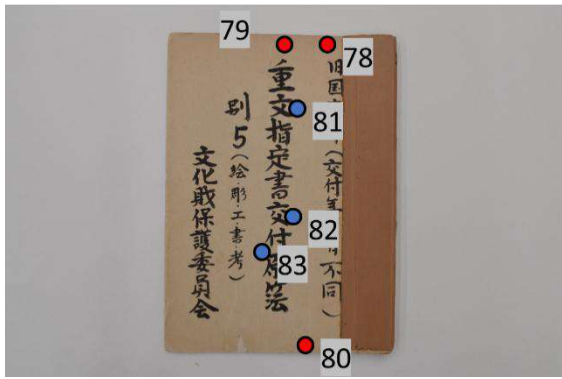 79
78
81
82
83
80
旧国(交付不同)
重文指定書交付
別5(絵・彫・工・書・考)
文化財保護委員会